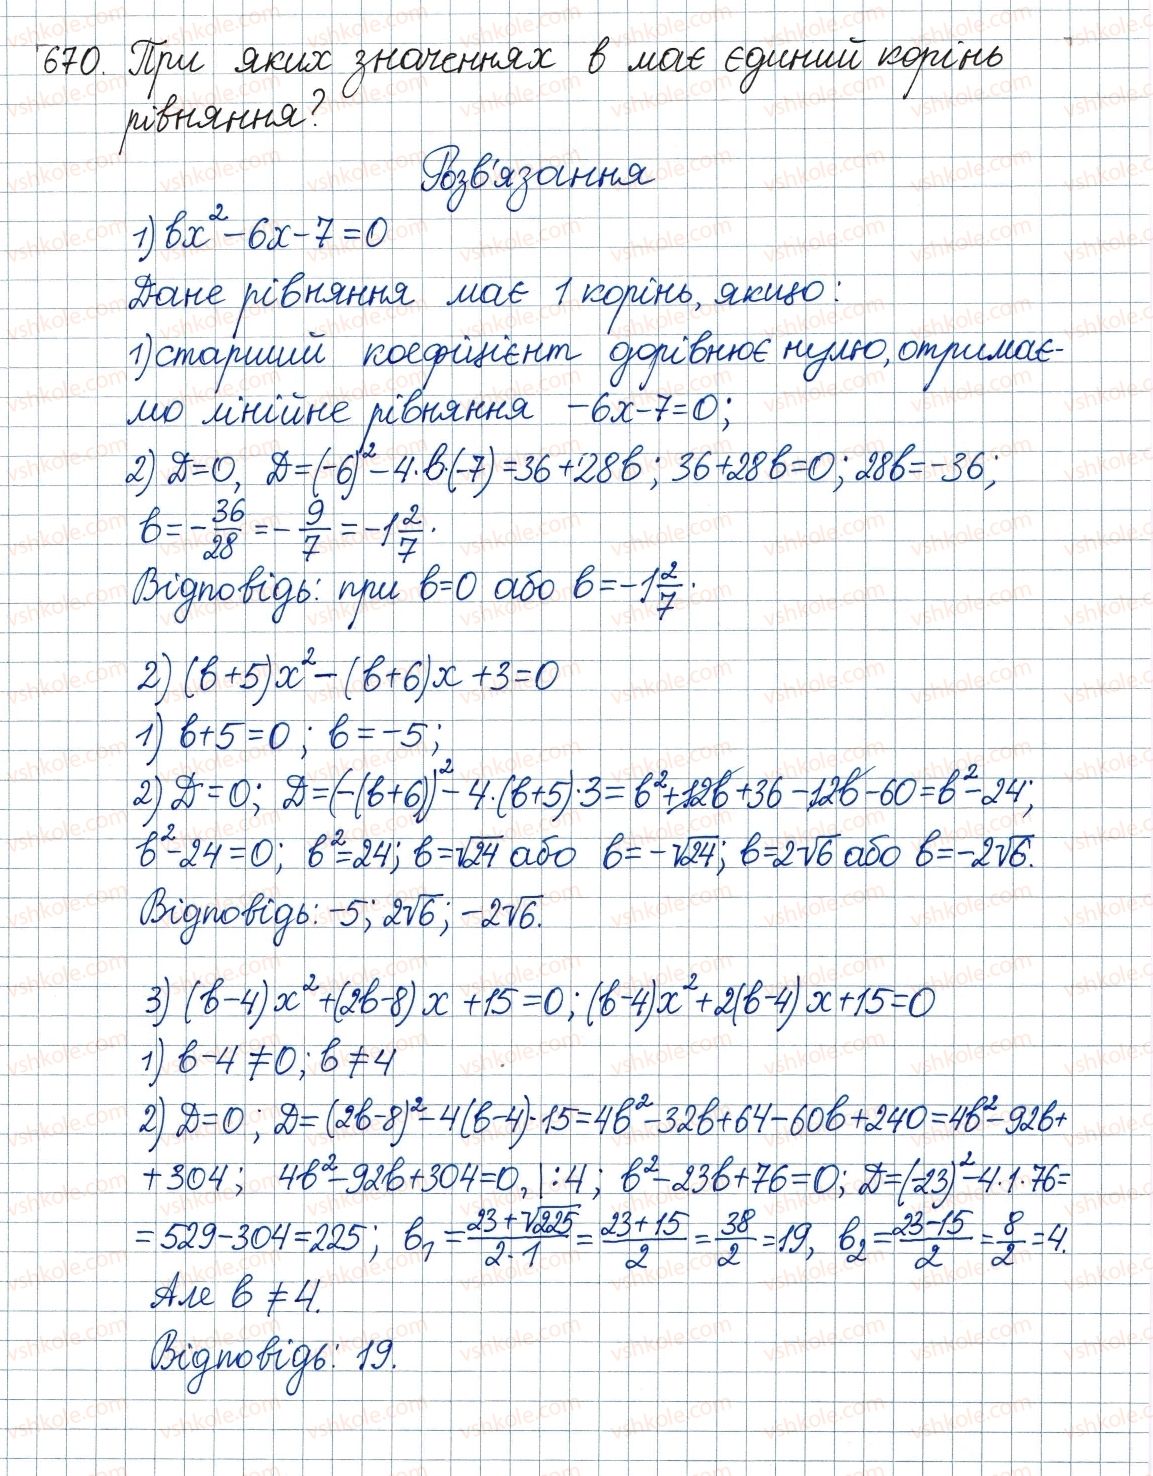 670. При яких значеннях в має єдиний корінь
рівняння?
Розв'язання
1) вx² - 6x - 7 = 0
Дане рівняння має 1 корінь, якщо:
1) старший коефіцієнт дорівнює нулю, отримає-
мо лінійне рівняння -6x-7=0;
2) D=0, D=(-6)²-4·в·(-7)=36+28в; 36+28в=0; 28в=-36;
в = -36/28 = -9/7 = -1 2/7.
Відповідь: при в=0 або в=-1 2/7.
2) (в+5)x² - (в+6)x + 3 = 0
1) в+5=0; в=-5;
2) D=0; D=(-(в+6))²-4·(в+5)·3=в²+12в+36-12в-60=в²-24;
в²-24=0; в²=24; в=√24 або в=-√24; в=2√6 або в=-2√6.
Відповідь: -5; 2√6; -2√6.
3) (в-4)x²+(2в-8)x+15=0; (в-4)x²+2(в-4)x+15=0
1) в-4≠0; в≠4
2) D=0; D=(2в-8)²-4(в-4)·15=4в²-32в+64-60в+240=4в²-92в+
+304; 4в²-92в+304=0, |:4; в²-23в+76=0; D=(-23)²-4·1·76=
=529-304=225; в₁=(23+√225)/(2·1)=(23+15)/2=38/2=19, в₂=(23-15)/2=8/2=4.
Але в≠4.
Відповідь: 19.